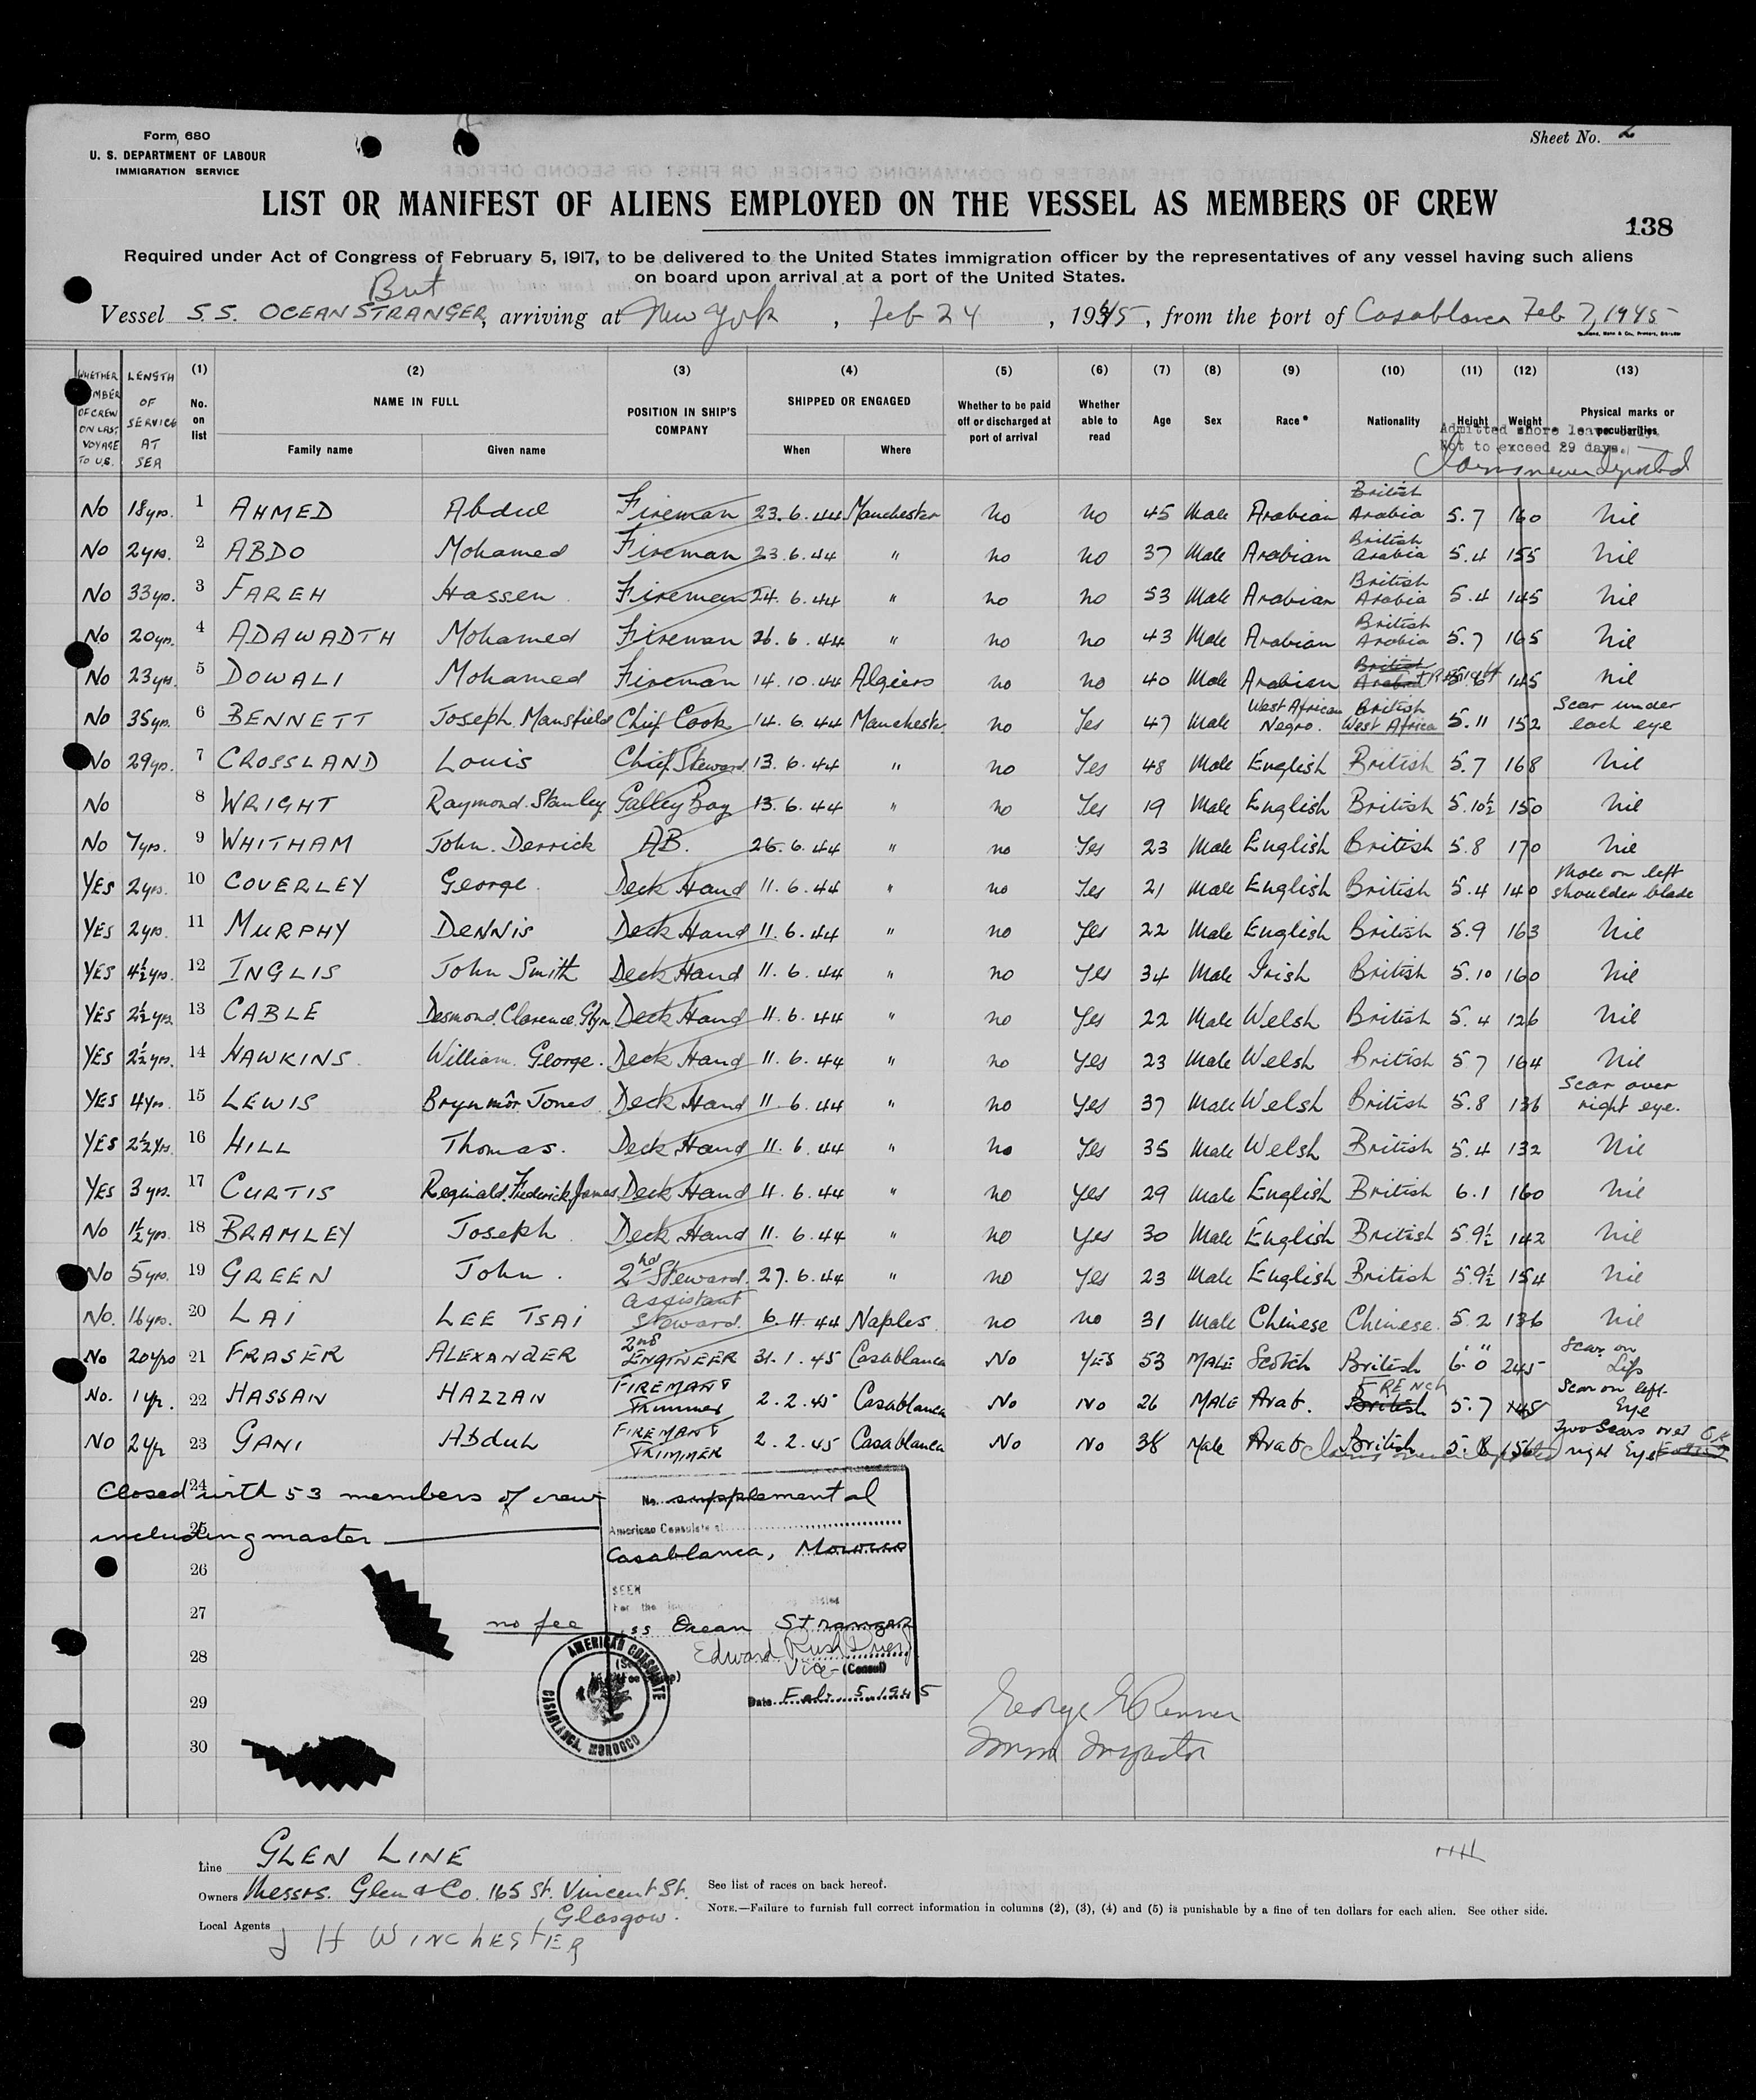 Form 680
U. S. DEPARTMENT OF LABOUR
IMMIGRATION SERVICE
Sheet No. 2
LIST OR MANIFEST OF ALIENS EMPLOYED ON THE VESSEL AS MEMBERS OF CREW
138
Required under Act of Congress of February 5, 1917, to be delivered to the United States immigration officer by the representatives of any vessel having such aliens
on board upon arrival at a port of the United States.
Brit
Vessel S.S. OCEAN STRANGER, arriving at New York, Feb 24, 1945, from the port of Casablanca Feb 7, 1945
WHETHER MEMBER OF CREW ON LAST VOYAGE TO U.S. LENGTH OF SERVICE AT SEA (1) No. on list (2) NAME IN FULL Family name Given name (3) POSITION IN SHIP'S COMPANY (4) SHIPPED OR ENGAGED When Where (5) Whether to be paid off or discharged at port of arrival (6) Whether able to read (7) Age (8) Sex (9) Race* (10) Nationality (11) Height (12) Weight (13) Physical marks or peculiarities
Admitted shore leave only.
Not to exceed 29 days.
Claims never deported
No 18 yrs. 1 AHMED Abdul Fireman 23.6.44 Manchester No No 45 Male Arabian British Arabia 5.7 160 Nil
No 2 yrs. 2 ABDO Mohamed Fireman 23.6.44 " no no 37 Male Arabian British Arabia 5.4 155 Nil
No 33 yrs. 3 FAREH Hassen Fireman 24.6.44 " no no 53 Male Arabian British Arabia 5.4 145 Nil
No 20 yrs. 4 ADAWADTH Mohamed Fireman 26.6.44 " no no 43 Male Arabian British Arabia 5.7 165 Nil
No 23 yrs. 5 DOWALI Mohamed Fireman 14.10.44 Algiers no no 40 Male Arabian British Arabia FRENCH 5.6 145 nil
No 35 yrs. 6 BENNETT Joseph Mansfield Chief Cook 14.6.44 Manchester no Yes 47 Male West African Negro. British West Africa 5.11 152 Scar under each eye
No 29 yrs. 7 CROSSLAND Louis Chief Steward 13.6.44 " no Yes 48 Male English British 5.7 168 Nil
No 8 WRIGHT Raymond Stanley Galley Boy 13.6.44 " no Yes 19 Male English British 5.10½ 150 Nil
No 7 yrs. 9 WHITHAM John Derrick AB. 26.6.44 " no Yes 23 Male English British 5.8 170 Nil
YES 2 yrs. 10 COVERLEY George. Deck Hand 11.6.44 " no Yes 21 Male English British 5.4 140 Mole on left shoulder blade
YES 2 yrs. 11 MURPHY DENNIS Deck Hand 11.6.44 " no Yes 22 Male English British 5.9 163 Nil
YES 4½ yrs. 12 INGLIS John Smith Deck Hand 11.6.44 " no Yes 34 Male Irish British 5.10 160 Nil
YES 2½ yrs. 13 CABLE Desmond Clarence Glyn Deck Hand 11.6.44 " no Yes 22 Male Welsh British 5.4 126 Nil
YES 2½ yrs. 14 HAWKINS. William George. Deck Hand 11.6.44 " no Yes 23 Male Welsh British 5.7 164 Nil
YES 4 yrs. 15 LEWIS Brynmôr Jones Deck Hand 11 6.44 " no Yes 37 Male Welsh British 5.8 136 Scar over right eye.
YES 2½ yrs. 16 HILL Thomas. Deck Hand 11.6.44 " No Yes 35 Male Welsh British 5.4 132 Nil
YES 3 yrs. 17 CURTIS Reginald Frederick James Deck Hand 11.6.44 " no Yes 29 Male English British 6.1 160 Nil
No 1½ yrs. 18 BRAMLEY Joseph Deck Hand 11.6.44 " no Yes 30 Male English British 5.9½ 142 Nil
No 5 yrs. 19 GREEN John. 2nd Steward 27.6.44 " no Yes 23 Male English British 5.9½ 154 Nil
No. 16 yrs. 20 LAI LEE TSAI assistant Steward. 6.11.44 Naples no no 31 Male Chinese Chinese 5.2 136 Nil
No 20 yrs 21 FRASER ALEXANDER 2nd ENGINEER 31.1.45 Casablanca No YES 53 MALE Scotch British 6'0" 245 Scar on Lip
No. 1 yr. 22 HASSAN HAZZAN FIREMAN & Trimmer 2.2.45 Casablanca No No 26 MALE Arab. FRENCH British 5.7 148 Scar on left Eye
No 2 yr 23 GANI Abduh FIREMAN & TRIMMER 2.2.45 Casablanca No No 38 Male Arab British 5.8 156 Two Scars over right Eye
Claims never deported
24 Closed with 53 members of crew
25 including master
26
27
28
29
30
No. supplemental
American Consulate at
Casablanca, Morocco
SEEN
no fee
SS Ocean Stranger
Vice- (Consul)
Date Feb. 5, 1945
AMERICAN CONSULATE
CASABLANCA, MOROCCO
Immn Inspector
Line GLEN LINE
Owners Messrs. Glen & Co. 165 St. Vincent St. Glasgow.
Local Agents J H WINCHESTER
See list of races on back hereof.
NOTE.—Failure to furnish full correct information in columns (2), (3), (4) and (5) is punishable by a fine of ten dollars for each alien. See other side.